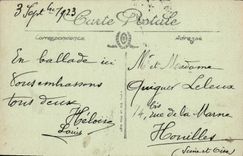 3 Sept bre 1923
Carte Postale
Correspondance
Adresse
En ballade ici
Vous embrassons
tous deux
Héloïse
Louis
M et Madame
Quiquet Leleux
4 bis rue de la Marne
Houilles
(Seine et Oise)